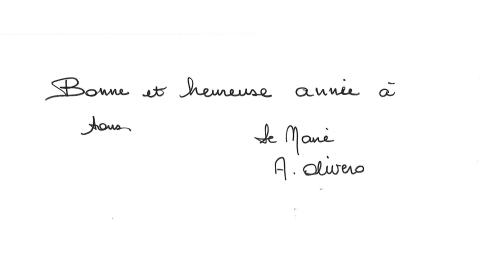 Bonne et heureuse année à
tous
Le Maire
A. Olivero